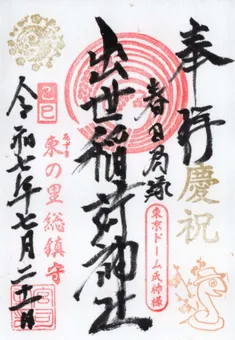 奉拝
慶祝
春日局縁
東京ドーム氏神様
出世稲荷神社
乙巳
あずま
東の里総鎮守
令和七年七月二十一日